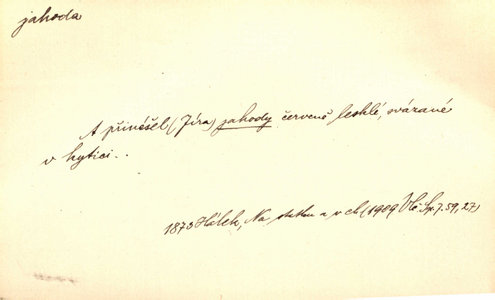 jahoda
A přinášel (Jíra) jahody červeně lesklé, svázané
v kytici..
1873 Hálek, Na statku a v ch (1909 Vlč. Sp. 7. 59, 27)